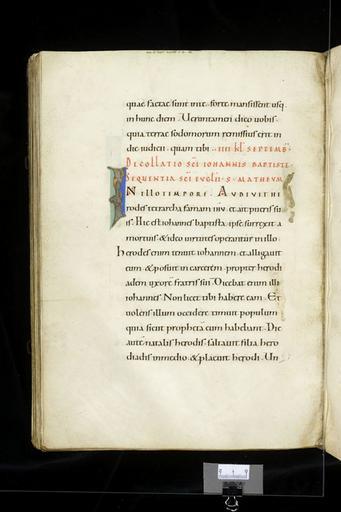 quae factae sunt inte. forte mansissent usq;
in hunc diem. Ueruntamen dico uobis.
quia terrae sodomorum remissius erit in
die iudicii. quam tibi. IIII KL SEPTEMB
DECOLLATIO SCI IOHANNIS BAPTISTE
SEQUENTIA SCI EVGLII. S. MATHEVM
IN ILLO TEMPORE. AUDIVIT HE
rodes tetrarcha famam ihu. et ait pueris su
is. Hic est iohannes baptista. ipse surrexit a
mortuis. & ideo uirtutes operantur in illo.
Herodes enim tenuit iohannem. et alligauit
eum. & posuit in carcerem. propter herodi
adem uxore fratris sui. Dicebat enim illi
iohannes. Non licet tibi habere eam. Et
uolens illum occidere. timuit populum
quia sicut propheta eum habebant. Die
aute natalis herodis. saltauit filia hero
diadis in medio. & placuit herodi. Un